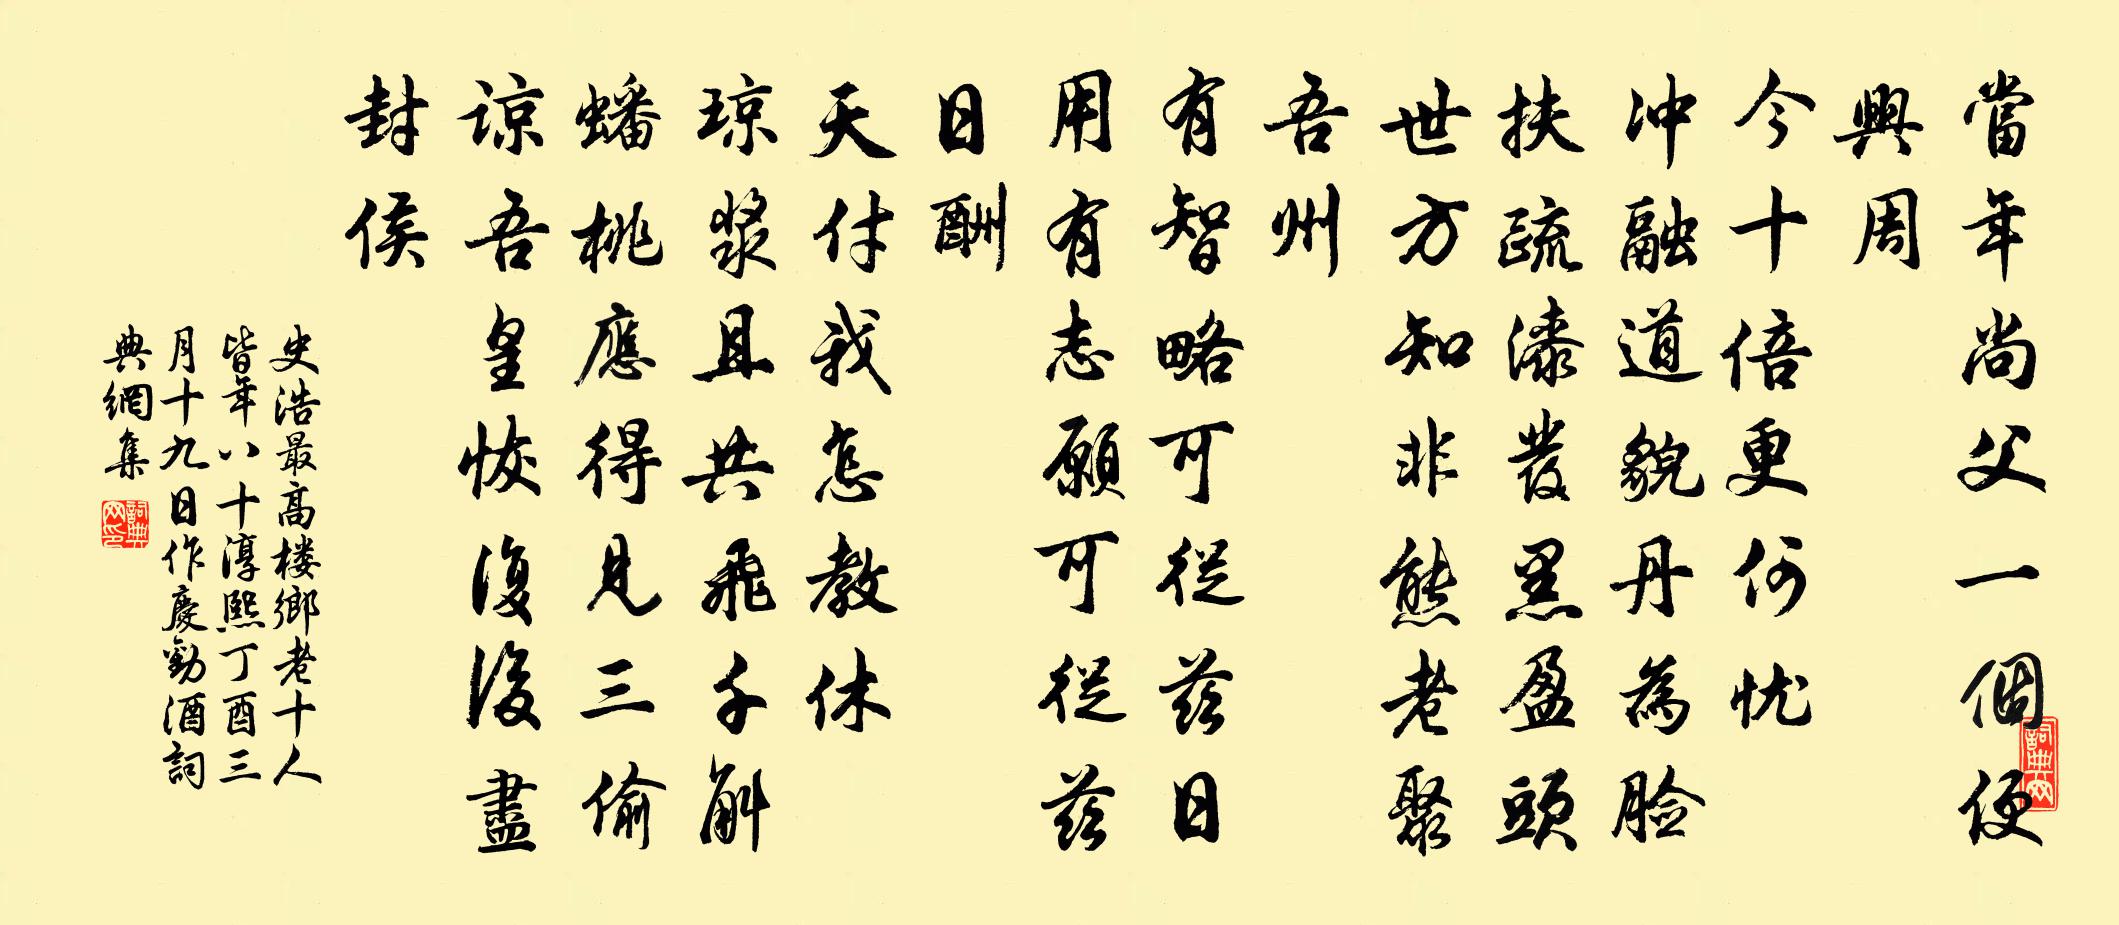 當年尚父一個便
興周
今十倍更何忧
冲融道貌丹為脸
扶疏漆發黑盈頭
世方知非熊老聚
吾州
有智略可從茲日
用有志願可從茲
日酬
天付我怎教休
琼漿且共飛千斛
蟠桃應得見三偷
谅吾皇恢復後盡
封侯
史浩最高楼鄉老十人
皆年八十淳熙丁酉三
月十九日作慶勸酒詞
典網集
詞典网印
詞典网